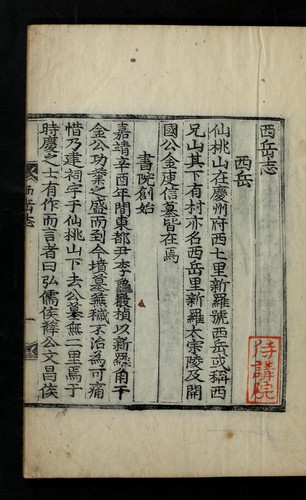 西岳志
西岳
仙桃山在慶州府西七里新羅號西岳或稱西
兄山其下有村亦名西岳里新羅太宗陵及開
國公金庾信墓皆在焉
書院創始
嘉靖辛酉年間東都尹李龜巖楨以新羅角干
金公功業之盛而到今墳墓蕪穢不治為可痛
惜乃建祠宇于仙桃山下去公墓無二里焉于
時慶之士有作而言者曰弘儒侯薛公文昌侯
西岳志
一
侍講院